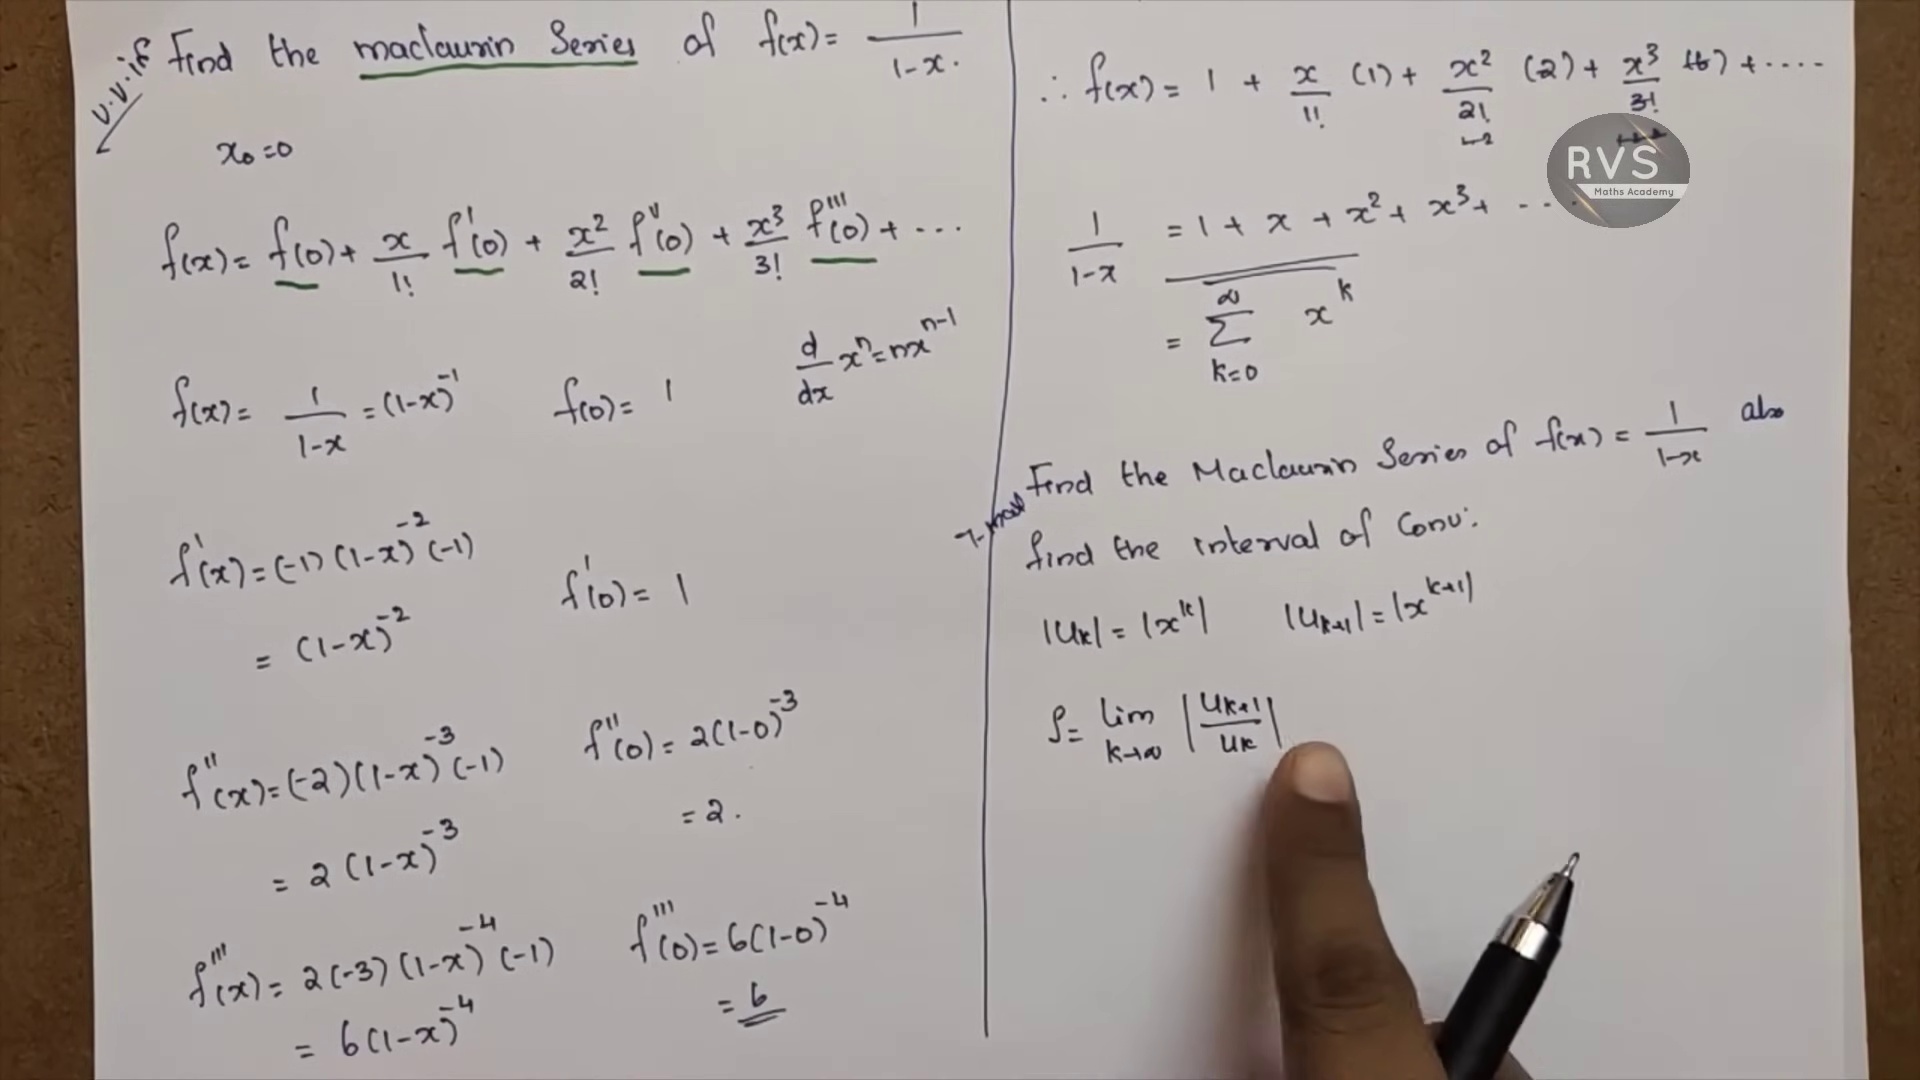 v.v.if
Find the maclaurin Series of f(x) = 1/(1-x).
x₀ = 0
f(x) = f(0) + x/1! f'(0) + x²/2! f''(0) + x³/3! f'''(0) + ...
d/dx xⁿ = nxⁿ⁻¹
f(x) = 1/(1-x) = (1-x)⁻¹ f(0) = 1
f'(x) = (-1)(1-x)⁻²(-1) f'(0) = 1
= (1-x)⁻²
f''(x) = (-2)(1-x)⁻³(-1) f''(0) = 2(1-0)⁻³
= 2.
= 2(1-x)⁻³
f'''(x) = 2(-3)(1-x)⁻⁴(-1) f'''(0) = 6(1-0)⁻⁴
= 6
= 6(1-x)⁻⁴
∴ f(x) = 1 + x/1! (1) + x²/2! (2) + x³/3! (6) + ....
RVS
Maths Academy
1/(1-x) = 1 + x + x² + x³ + ....
= ∞ Σ k=0 xᵏ
Find the Maclaurin Series of f(x) = 1/(1-x) also
find the interval of Conv:
|uₖ| = |xᵏ| |uₖ₊₁| = |xᵏ⁺¹|
ρ = lim k→∞ |uₖ₊₁/uₖ|